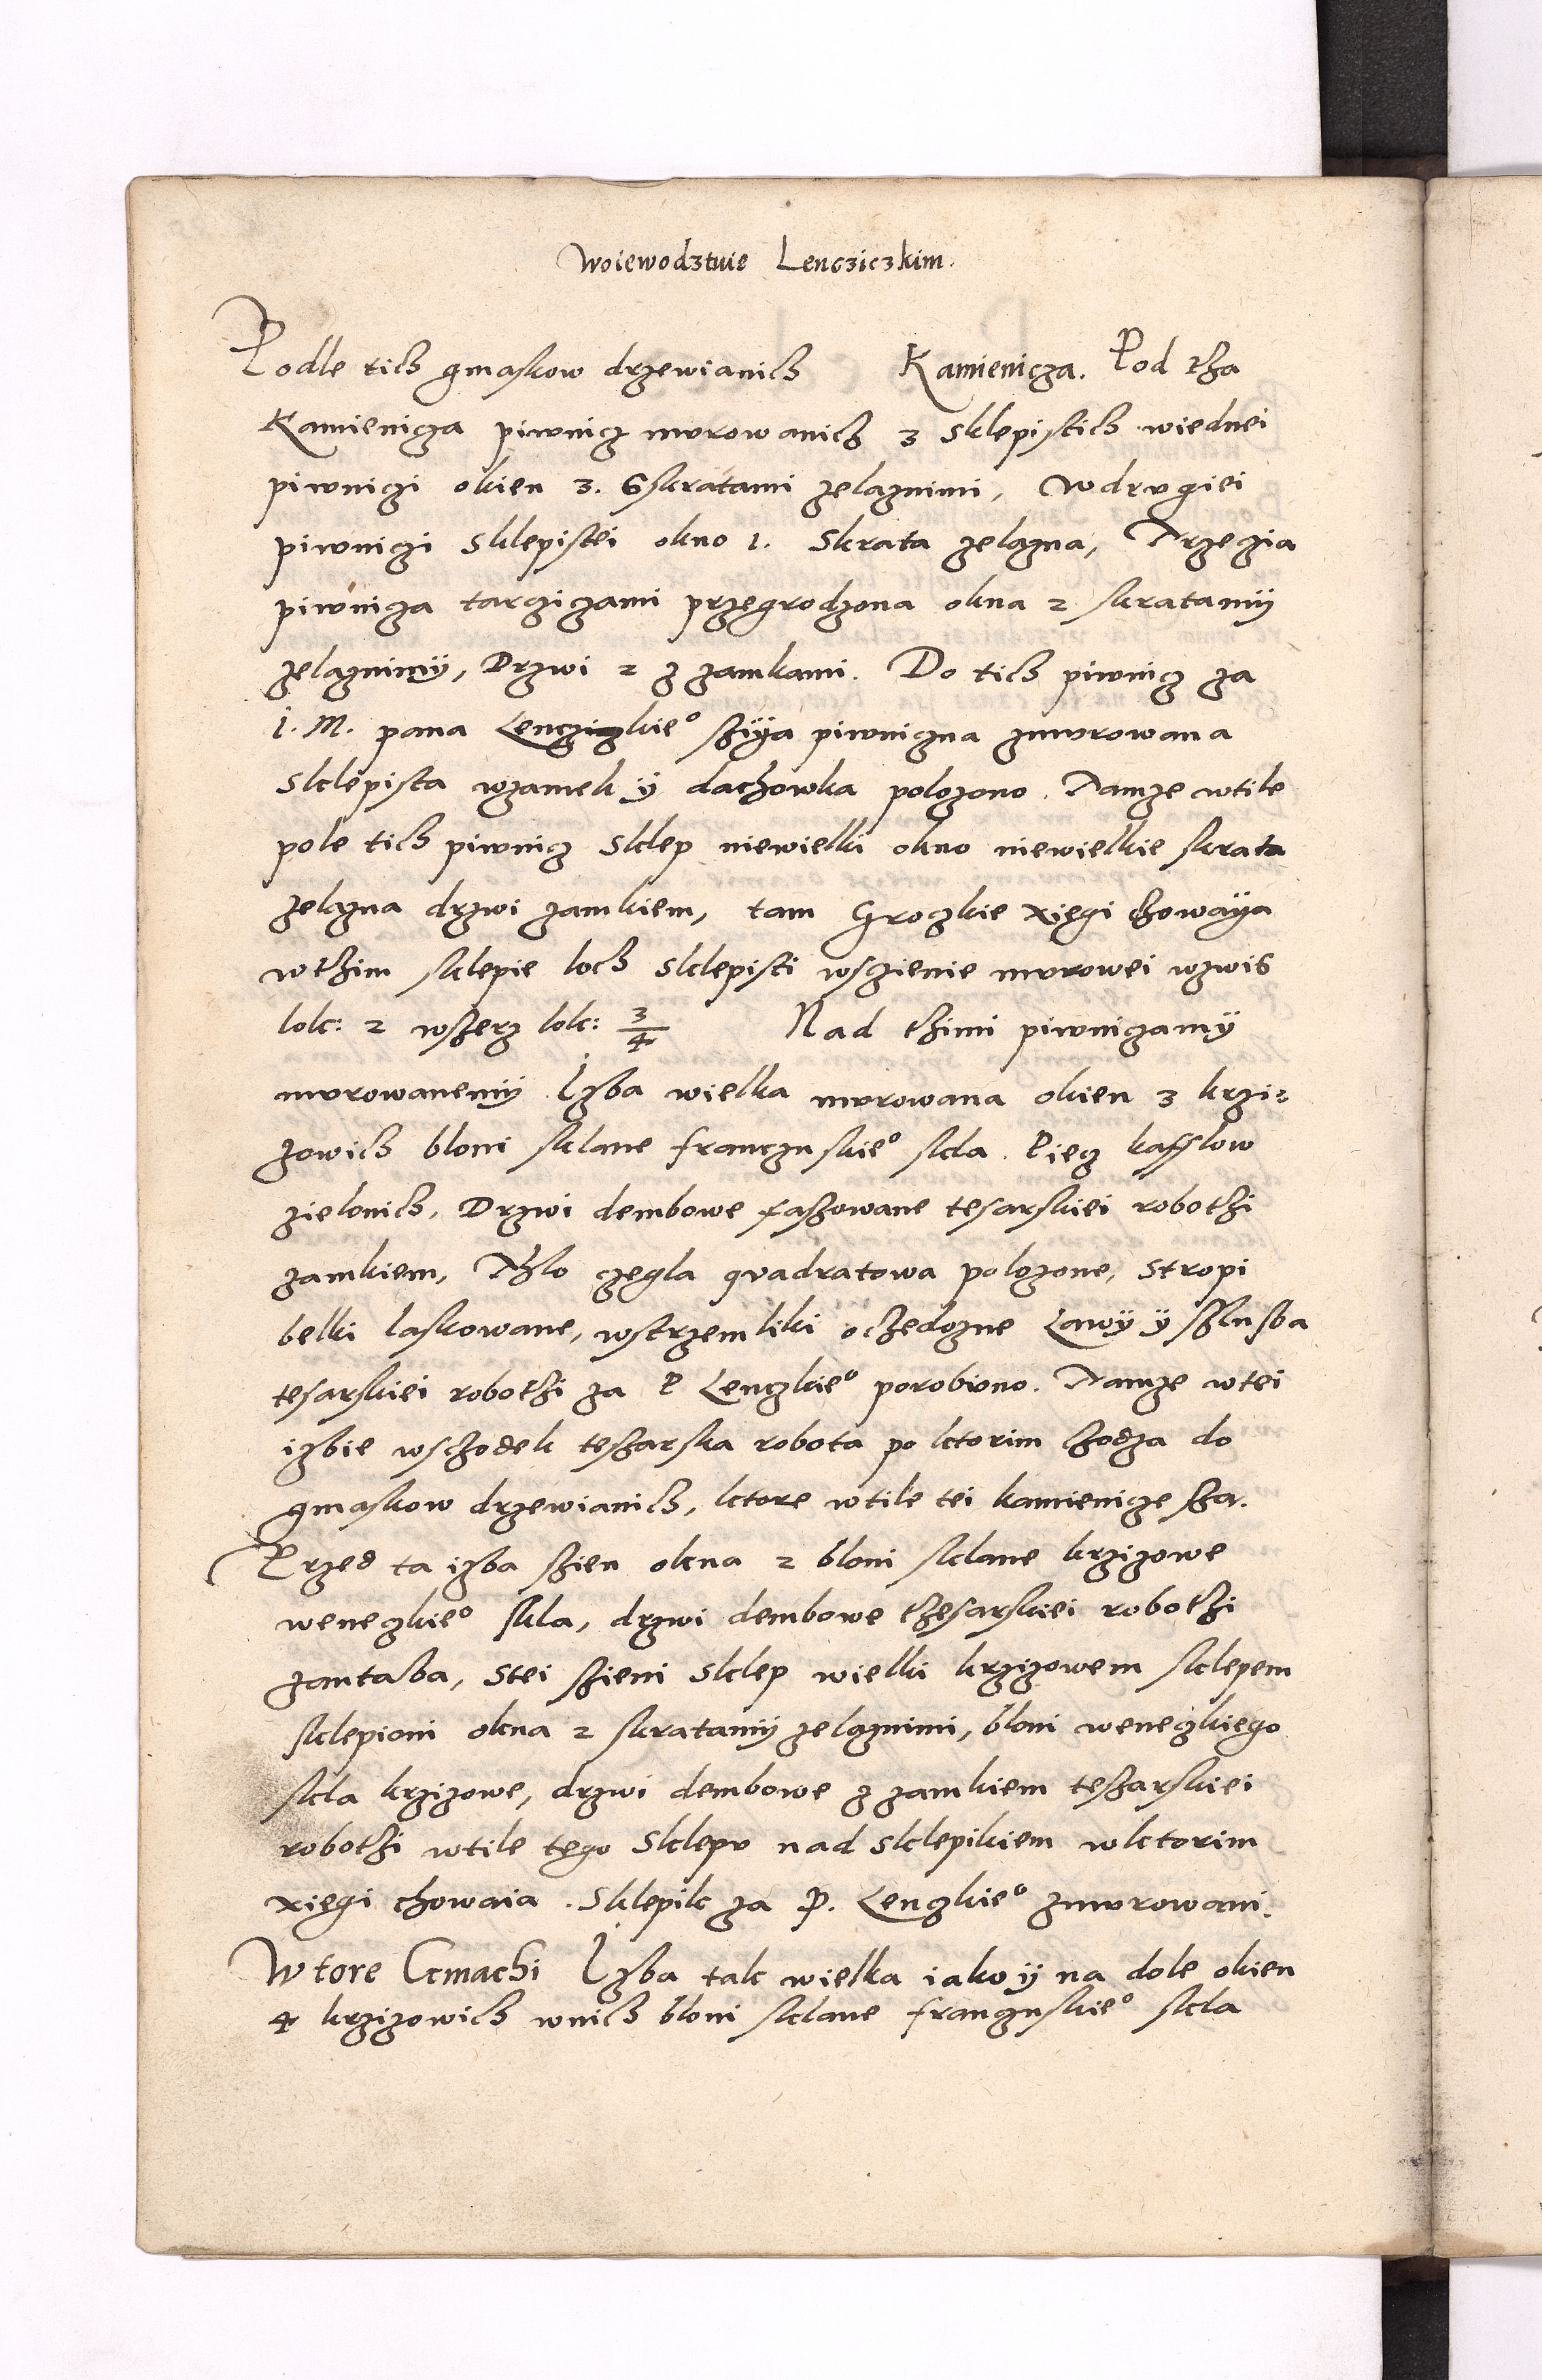 Woiewodztwie Lencziczkim.
Podle tich gmaskow drzewianich Kamienicza. Pod tha
Kamienicza piwnicz murowanich 3 Sklepistich wiednei
piwniczi okien 3. Skratami zelaznimi, Wdrugiei
piwniczi Sklepistei okno 1. Skrata zelazna, Trzeczia
piwnicza tarcziczami przegrodzona okna 2 skratamÿ
zelaznimÿ, Drzwi 2 z zamkami. Do tich piwnicz za
I. M. pana Lencziczkie° szÿya piwniczna zmurowana
Sklepista wzamek ÿ dachowka polozono. Tamze wtile
pole tich piwnicz Sklep niewielki okno niewielkie skrata
zelazna drzwi zamkiem, tam Groczkie xiegi chowaÿa
wthim sklepie loch Sklepisti wsczienie murowei wzwis
lok: 2 wszerz lok: 3/4 Nad thimi piwniczamÿ
murowanemÿ Izba wielka murowana okien 3 krzi=
zowich bloni sklane franczuskie° skla. Piecz kafflow
zielonich, Drzwi dembowe faszowane tesarskiei robothi
zamkiem, Thlo czegla quadratowa polozone, Stropi
belki laskowane, wstrzemliki ochedozne Lawÿ y szluzba
tesarskiei robothi za P Lenczkie° porobiono. Tamze wtei
izbie wschodek teszarska robota po ktorim chodza do
gmaskow drzewianich, ktore wtile tei kamienicze sza.
Przed ta izba szien okna 2 bloni sklane krzizowe
weneczkie° skla, drzwi dembowe thesarskiei robothi
zantaba, Stei szieni Sklep wielki krzizowem sklepem
sklepioni okna 2 skratamÿ zelaznimi, bloni weneczkiego
skla krzizowe, drzwi dembowe z zamkiem teszarskiei
robothi wtile tego Sklepu nad Sklepikiem wktorim
xiegi chowaia. Sklepik za P. Lenczkie° zmurowani.
Wtore Gmachi Izba tak wielka iako ÿ na dole okien
4 krzizowich wnich bloni sklane franczuskie° skla